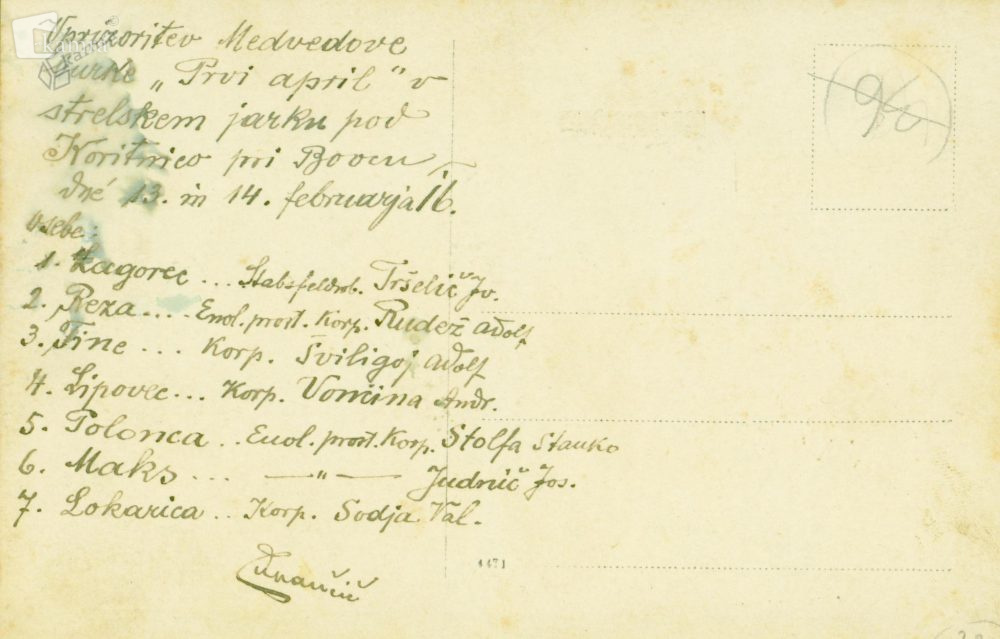 Vprizoritev Medvedove
burke „Prvi april" v
strelskem jarku pod
Koritnico pri Bovcu
dné 13. in 14. februarja 16.
Osebe:
1. Zagorec ... Stabsfeldwb. Tršelič Jv.
2. Reza .... Enol. prost. Korp. Rudež Adolf
3. Tine ... Korp. Šviligoj Adolf
4. Lipovec ... Korp. Vončina Andr.
5. Polonca .. Enol. prost. Korp. Štolfa Stanko
6. Maks ... —„— Judnič Jos.
7. Lokarica .. Korp. Sodja Val.
1471
kamra